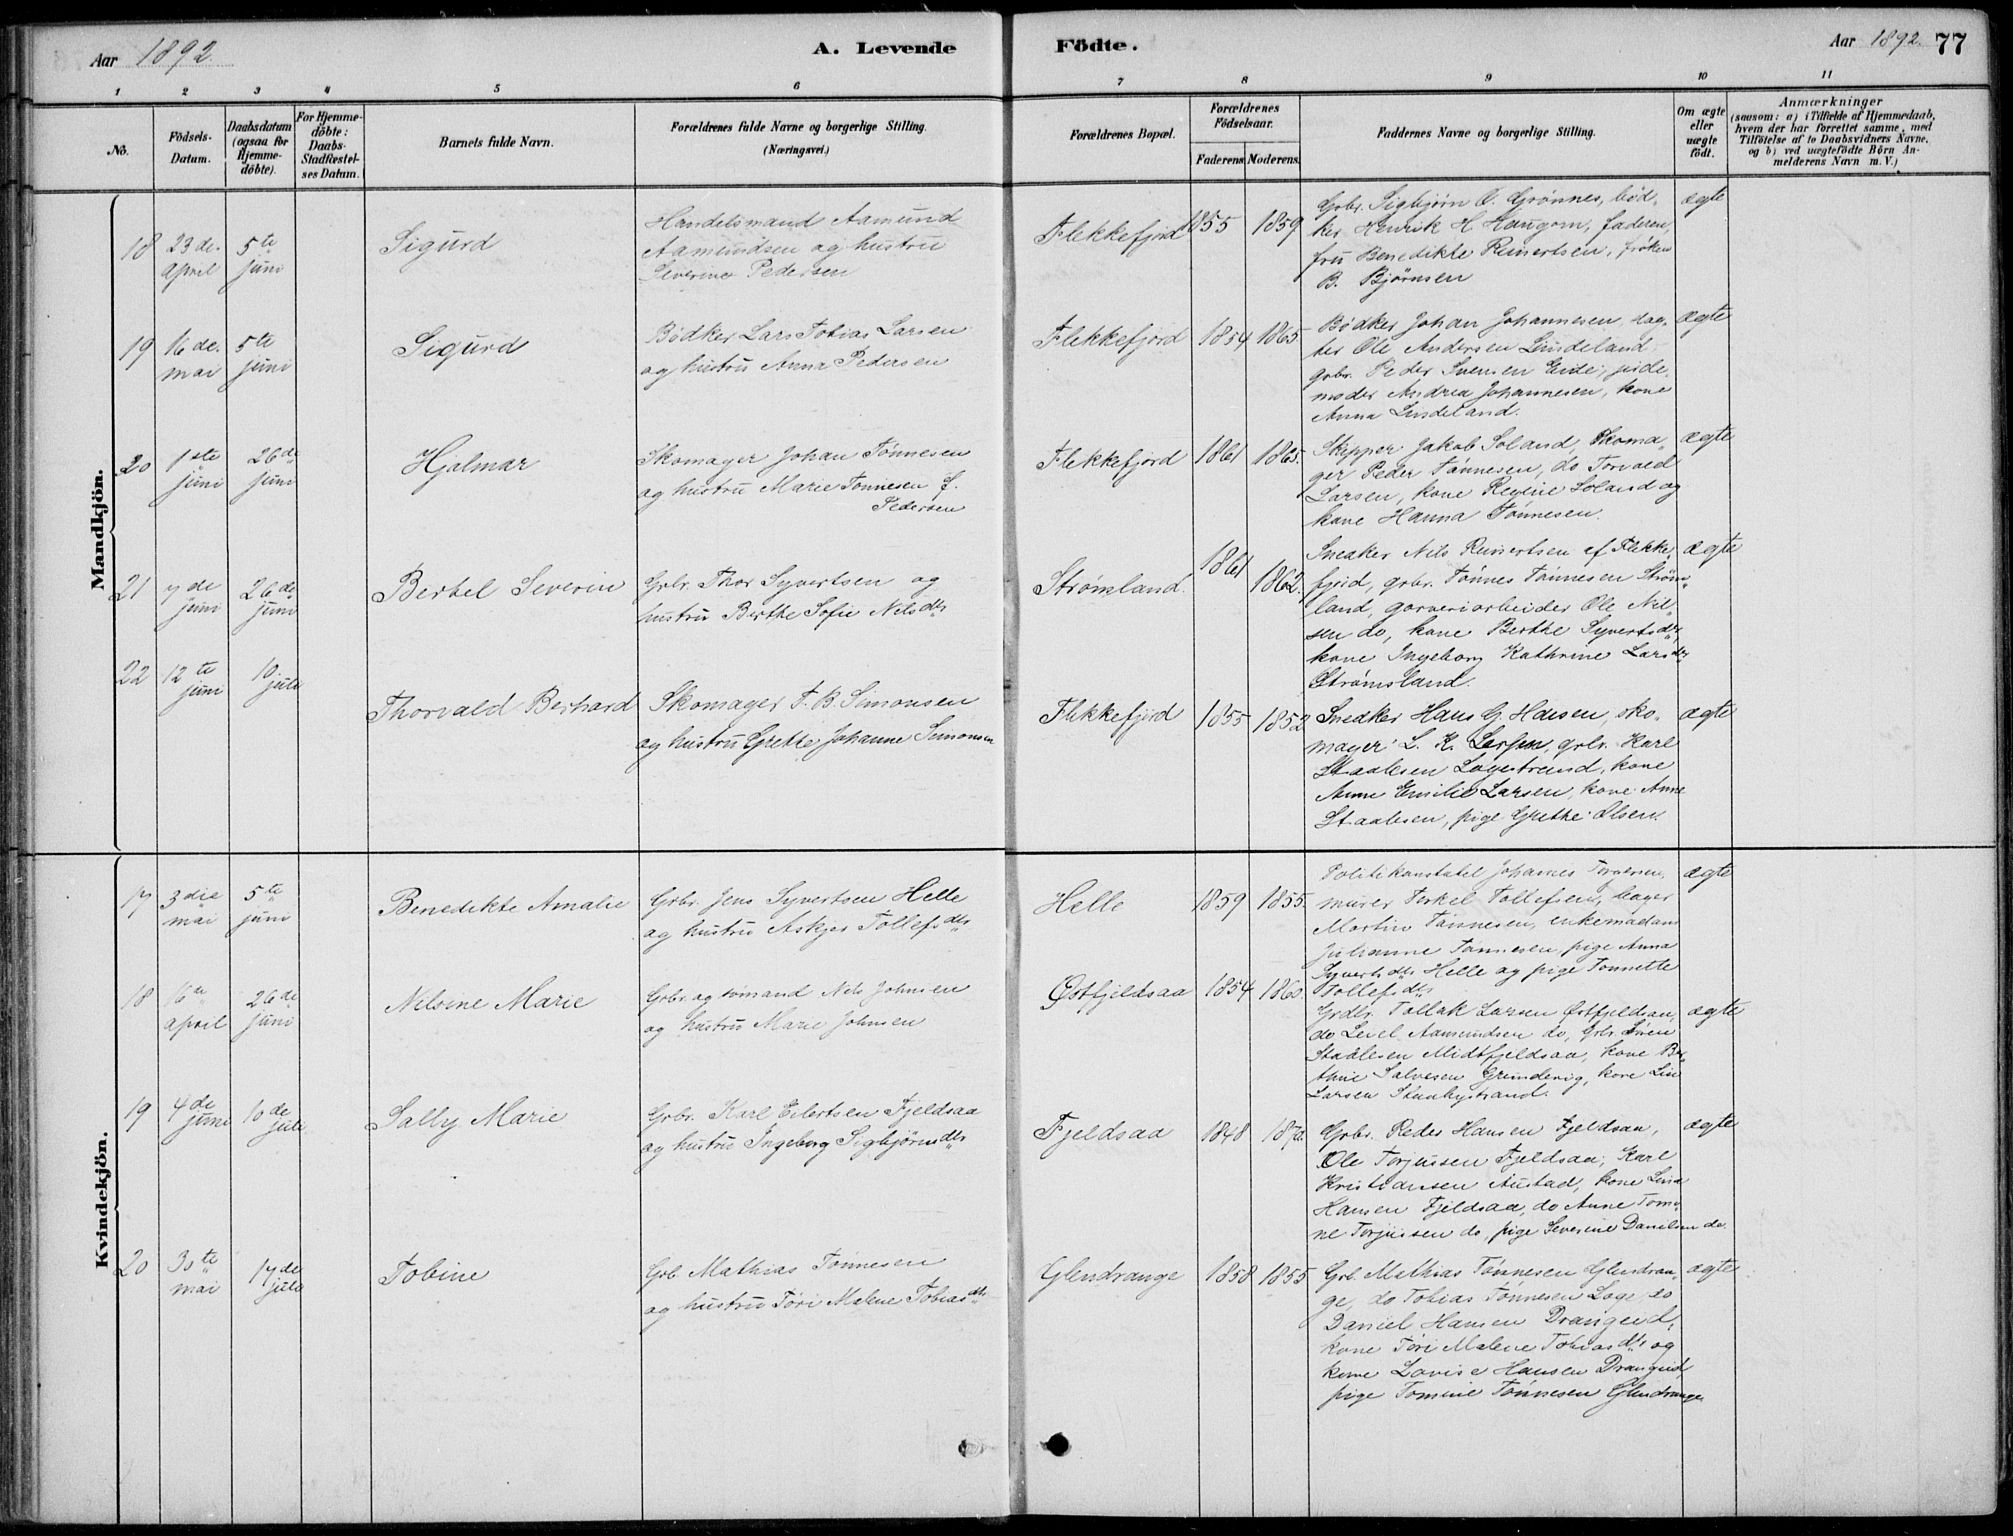 Aar 1892.
A. Levende Födte.
Aar 1892. 77
1 2 3 4 5 6 7 8 9 10 11
No.
Födsels-Datum.
Daabsdatum (ogsaa for Hjemme-döbte).
For Hjemme-döbte: Daabs-Stadfæstel-ses Datum.
Barnets fulde Navn.
Forældrenes fulde Navne og borgerlige Stilling.
(Næringsvei.)
Forældrenes Bopæl.
Forældrenes Födselsaar.
Faderens. Moderens.
Faddernes Navne og borgerlige Stilling.
Om ægte eller uægte födt.
Anmærkninger
(saasom: a) i Tilfælde af Hjemmedaab,
hvem der har forrettet samme, med
Tilföielse af to Daabsvidners Navne,
og b) ved uægtefödte Börn An-
melderens Navn m. V.)
Mandkjön.
18 23de april 5te juni Sigurd
Handelsmand Aamund
Aamundsen og hustru
Severine Pedersen
Flekkefjord 1855 1859
Gbr. Sigbjørn O. Grønnes, bød-
ker Henrik H Haugom, faderen,
fru Benedikte Reinertsen, frøken
B. Bjørnsen
ægte
19 16de mai 5te juni Sigurd
Bødker Lars Tobias Larsen
og hustru Anna Pedersen
Flekkefjord 1854 1865
Bødker Johan Johannesen,
Ole Andersen Lindeland
gbr. Peder Svensen Eide, jorde-
moder Andrea Johannesen, kone
Anna Lindeland.
ægte
20 1ste juni 26de juni Hjalmar
Skomager Johan Tønnesen
og hustru Marie Tønnesen f.
Pedersen
Flekkefjord 1861 1865.
Skipper Jakob Soland, Skoma-
ger Peder Tønnesen, do Torvald
Larsen, kone Regine Soland og
kone Hanna Tønnesen.
ægte
21 7de juni 26de juni Bertel Severin
Grbr. Thor Syvertsen og
hustru Berthe Sofie Nilsdtr
Strømland. 1861 1862.
Snedker Nils Reinertsen af Flekke-
fjord, grbr. Tønnes Tønnesen Strøm-
land, garveriarbeider Ole Nil-
sen do, kone Berthe Syvertsdtr,
kone Ingeborg Kathrine Larsdtr
Strømsland.
ægte
22 12te juni 10 juli Thorvald Berhard
Skomager T. B. Simonsen
og hustru Grethe Johanne Simonsen
Flekkefjord 1855 1852
Snedker Hans G. Hansen, sko-
mager L. K. Larsen, grbr. Karl
Staalesen Løgestrand, kone
Anne Emilie Larsen, kone Anne
Staalesen, pige Grethe Olsen.
ægte
Kvindekjön.
17 3die mai 5te juni Benedikte Amalie
Grbr. Jens Syvertsen Helle
og hustru Askjer Tollefsdtr
Helle 1859 1855.
Politikonstabel Johannes Torgersen,
murer Terkel Tollefsen, bager
Martin Tønnesen, enkemadam
Julianne Tønnesen, pige Anna
Syvertsdtr Helle og pige Tonnette
Tollefsdtr
ægte
18 16de april 26de juni Nelsine Marie
Grbr. og sømand Nils Johnsen
og hustru Marie Johnsen
Østfjeldsaa 1854 1860.
Grdbr. Tollak Larsen Østfjeldsaa,
do Leiel Aamundsen do, grbr. Sören
Staalesen Midtfjeldsaa, kone Ber-
thine Salvesen Grundevig, kone Line
Larsen
ægte
19 4de juni 10de juli Sally Marie
Grbr. Karl Eilertsen Fjeldsaa
og hustru Ingeborg Sigbjørnsdtr
Fjeldsaa 1848 1870.
Grbr. Peder Hansen Fjeldsaa,
Ole Torjussen Fjeldsaa, Karl
Kristiansen Austad, kone Lina
Hansen Fjeldsaa, do Anne Tomi-
ne Torjussen do, pige Severine Danielsen do
ægte
20 30te mai 17de juli Tobine
Grb. Mathias Tønnesen
og hustru Tøri Malene Tobiasdtr
Glendrange 1858 1855
Grb. Mathias Tønnesen Glendran-
ge, do Tobias Tønnesen Loge, do
Daniel Hansen Drangeid,
kone Tøri Malene Tobiasdtr og
kone Lovise Hansen Drangeid,
pige Tomine Tønnesen Glendrange
ægte